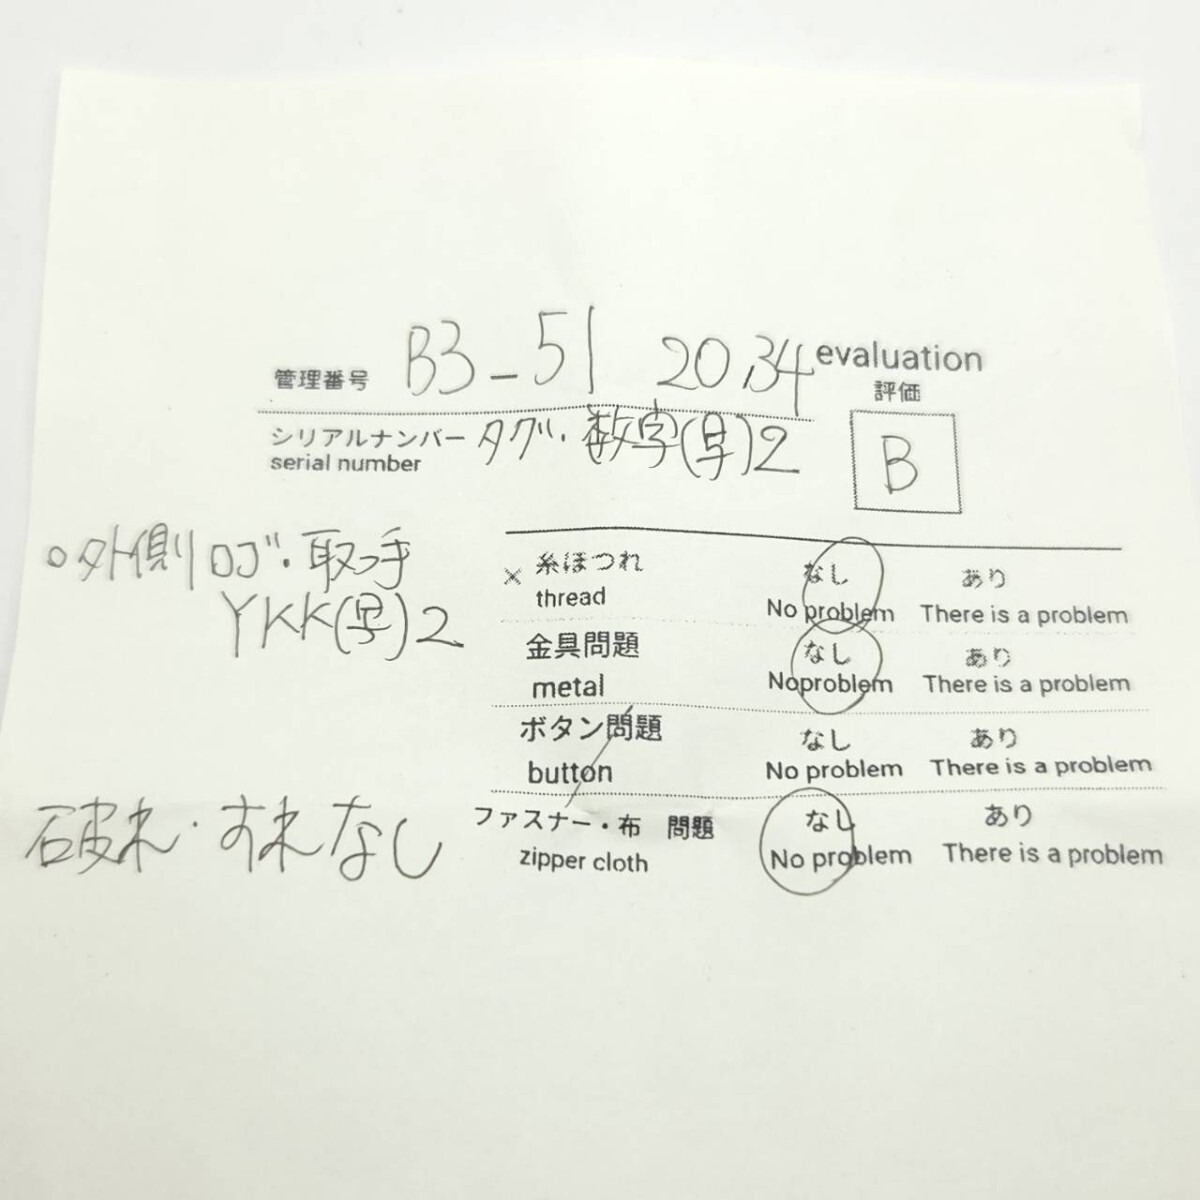 管理番号 B3-51 20,34
evaluation
評価
シリアルナンバー タグ・数字(写)2
serial number
B
○外側ロゴ・取っ手
YKK(写)2
× 糸ほつれ なし あり
thread No problem There is a problem
金具問題 なし あり
metal Noproblem There is a problem
ボタン問題 なし あり
button No problem There is a problem
ファスナー・布 問題 なし あり
zipper cloth No problem There is a problem
破れ・すれなし